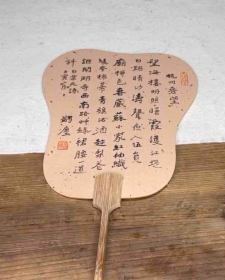 杭州春望
望海樓明照曙霞護江堤
白踏晴沙濤聲夜入伍員
廟柳色春藏蘇小家紅袖織
綾夸柿蒂青旗沽酒趁梨花
誰開湖寺西南路草綠裙腰一道
斜白居易詩